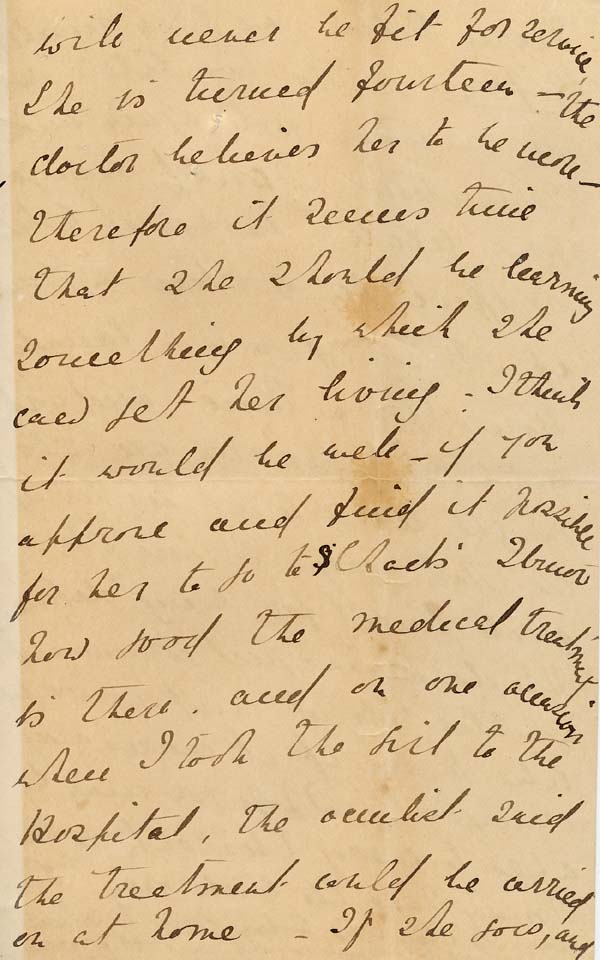 will never be fit for service,
She is turned fourteen – the
doctor believes her to be more –
therefore it seems time
that she should be learning
something by which she
can get her living – I think
it would be well – if you
approve and find it possible
for her to go to St Chad's I know
how good the medical treatment
is there. and on one occasion
when I took the girl to the
Hospital, the oculist said
the treatment could be carried
on at home – If she goes, and